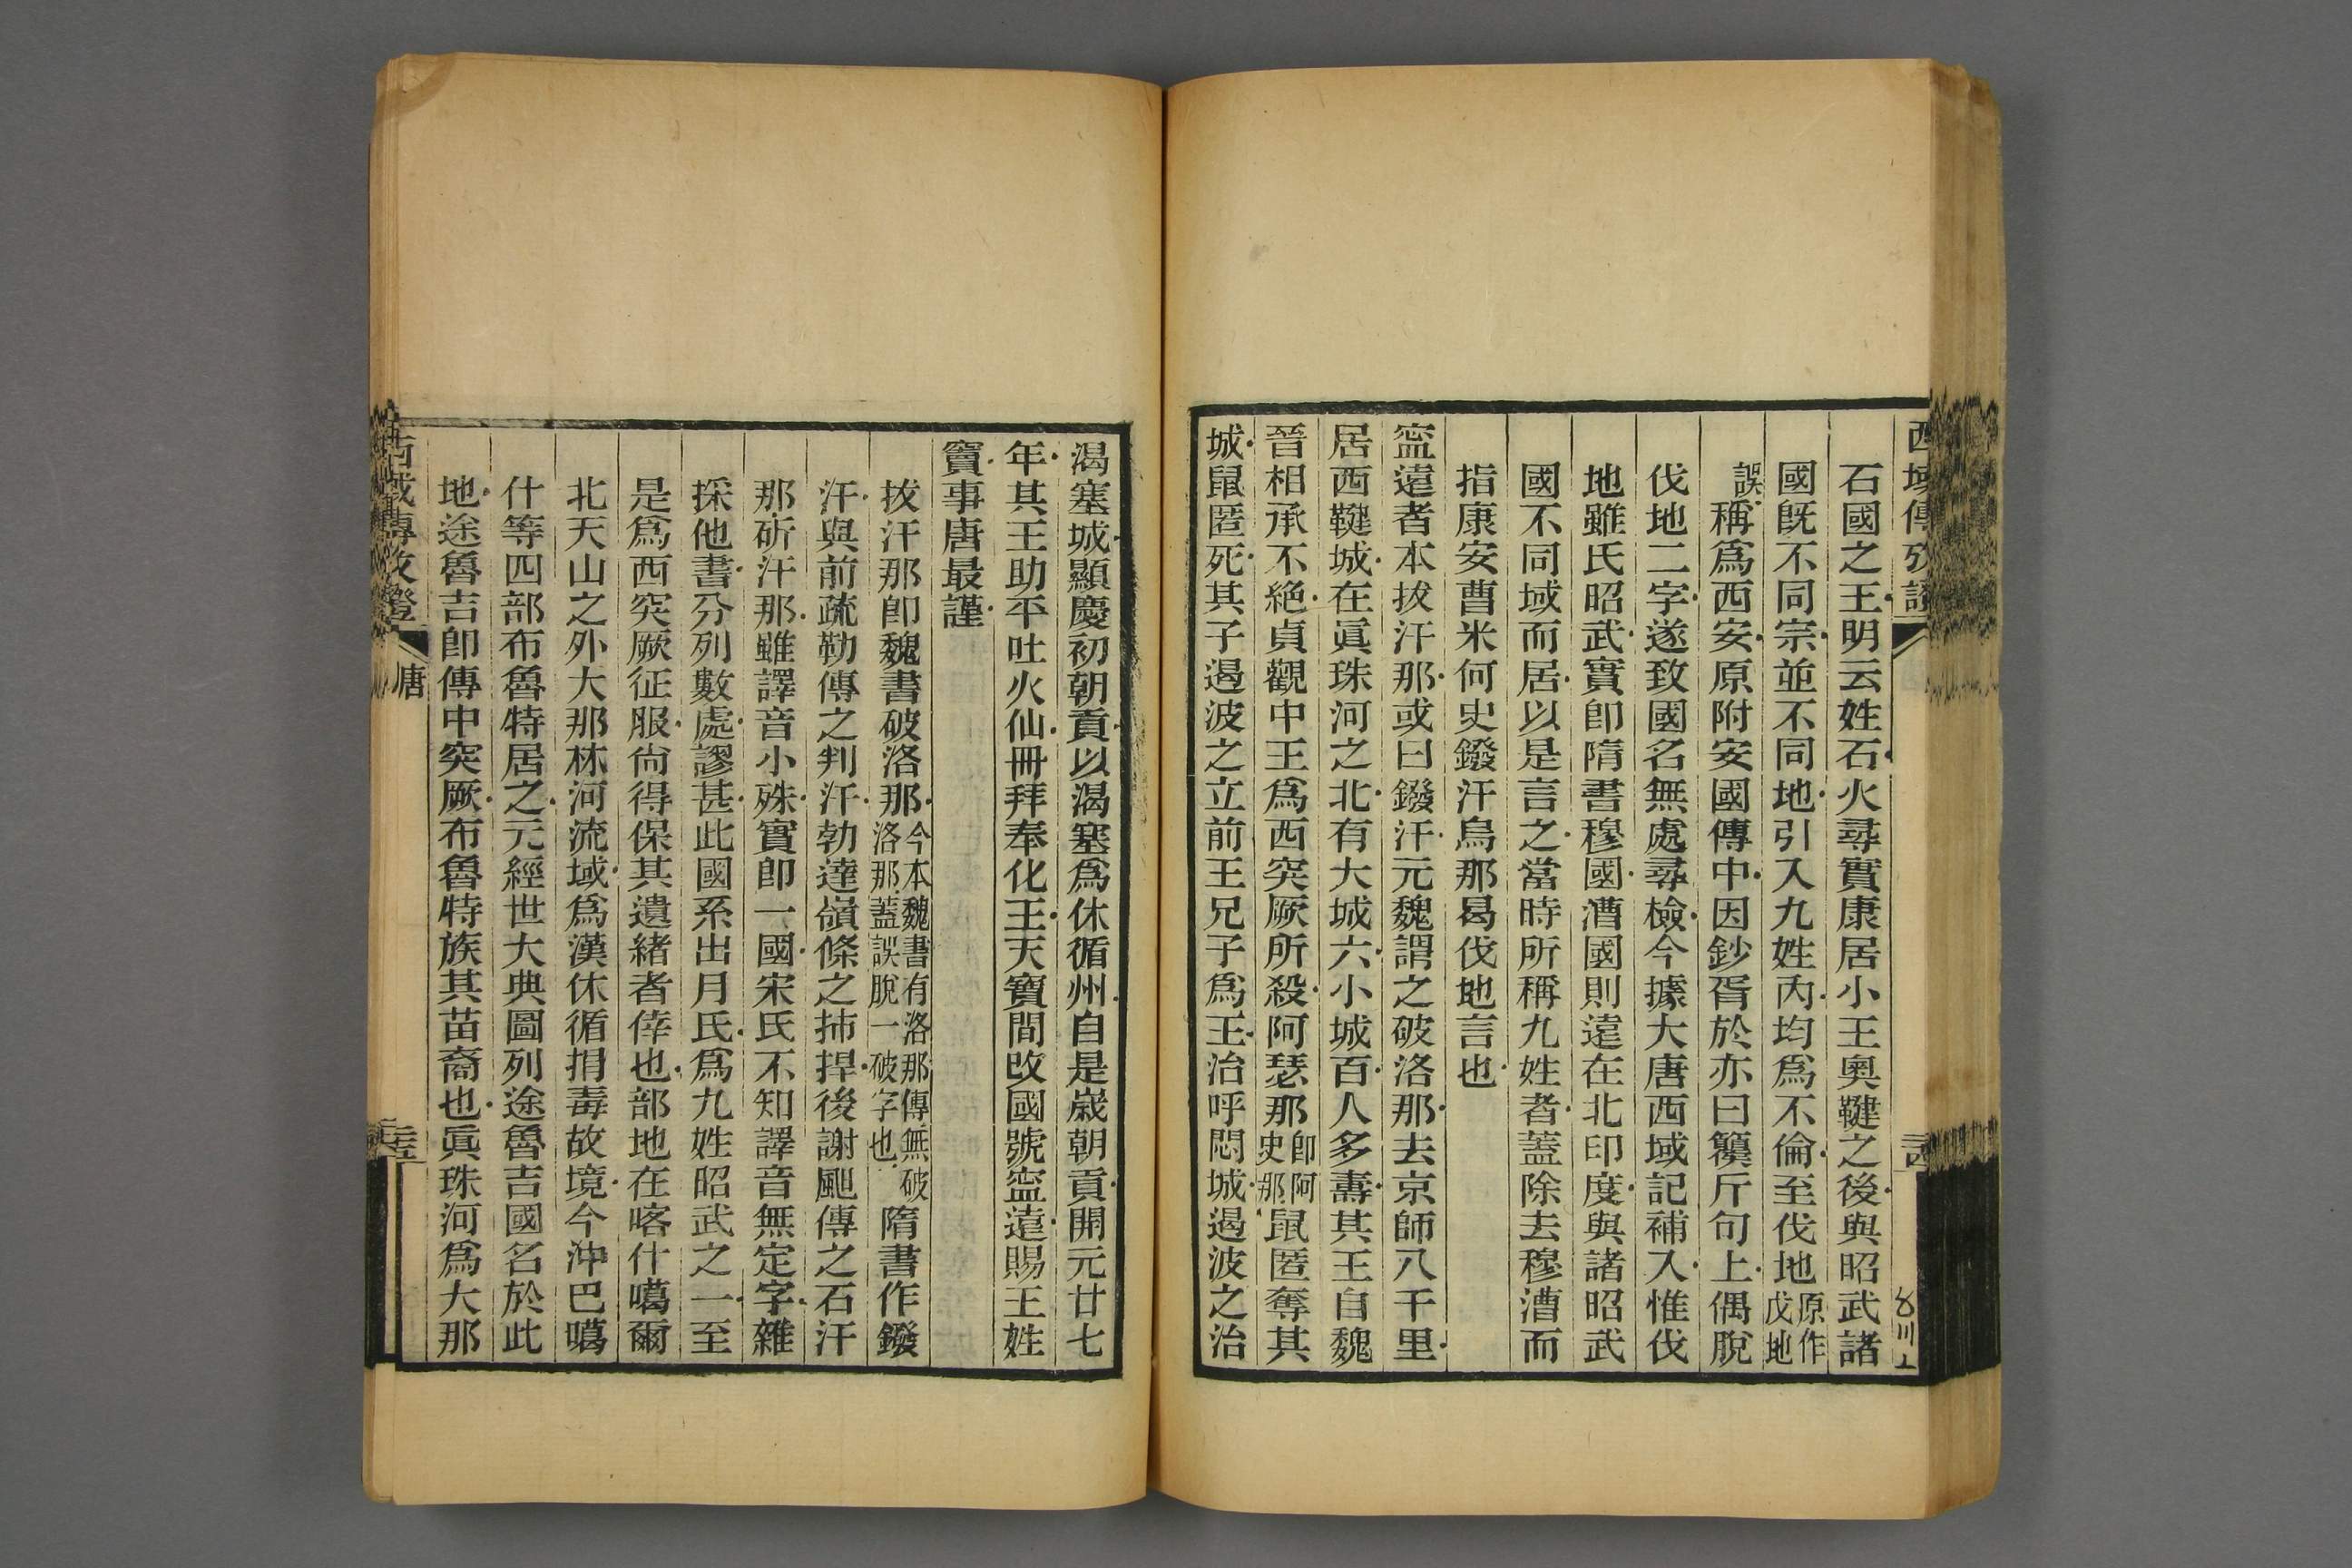 石國之王明云姓石火尋實康居小王奧鞬之後與昭武諸
國既不同宗並不同地引入九姓內均爲不倫至伐地原作戊地
誤稱爲西安原附安國傳中因鈔胥於亦曰籞斤句上偶脫
伐地二字遂致國名無處尋檢今據大唐西域記補入惟伐
地雖氏昭武實卽隋書穆國漕國則遠在北印度與諸昭武
國不同域而居以是言之當時所稱九姓者蓋除去穆漕而
指康安曹米何史鏺汗烏那曷伐地言也
寍遠者本拔汗那或曰鏺汗元魏謂之破洛那去京師八千里
居西鞬城在眞珠河之北有大城六小城百人多壽其王自魏
晉相承不絕貞觀中王爲西突厥所殺阿瑟那卽阿史那鼠匿奪其
城鼠匿死其子遏波之立前王兄子爲王治呼悶城遏波之治
渴塞城顯慶初朝貢以渴塞爲休循州自是歲朝貢開元廿七
年其王助平吐火仙冊拜奉化王天寶間改國號寍遠賜王姓
竇事唐最謹
拔汗那卽魏書破洛那今本魏書有洛那傳無破洛那蓋誤脫一破字也隋書作鏺
汗與前疏勒傳之判汗勃達嶺條之㧊捍後謝䫻傳之石汗
那斫汗那雖譯音小殊實卽一國宋氏不知譯音無定字雜
採他書分列數處謬甚此國系出月氏爲九姓昭武之一至
是爲西突厥征服尙得保其遺緒者倖也部地在喀什噶爾
北天山之外大那林河流域爲漢休循捐毒故境今沖巴噶
什等四部布魯特居之元經世大典圖列途魯吉國名於此
地途魯吉卽傳中突厥布魯特族其苗裔也眞珠河爲大那
西域傳攷證
唐